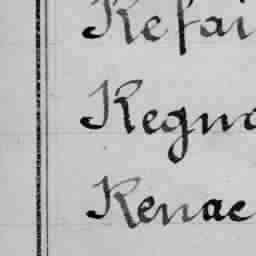 Refai
Regno
Renae